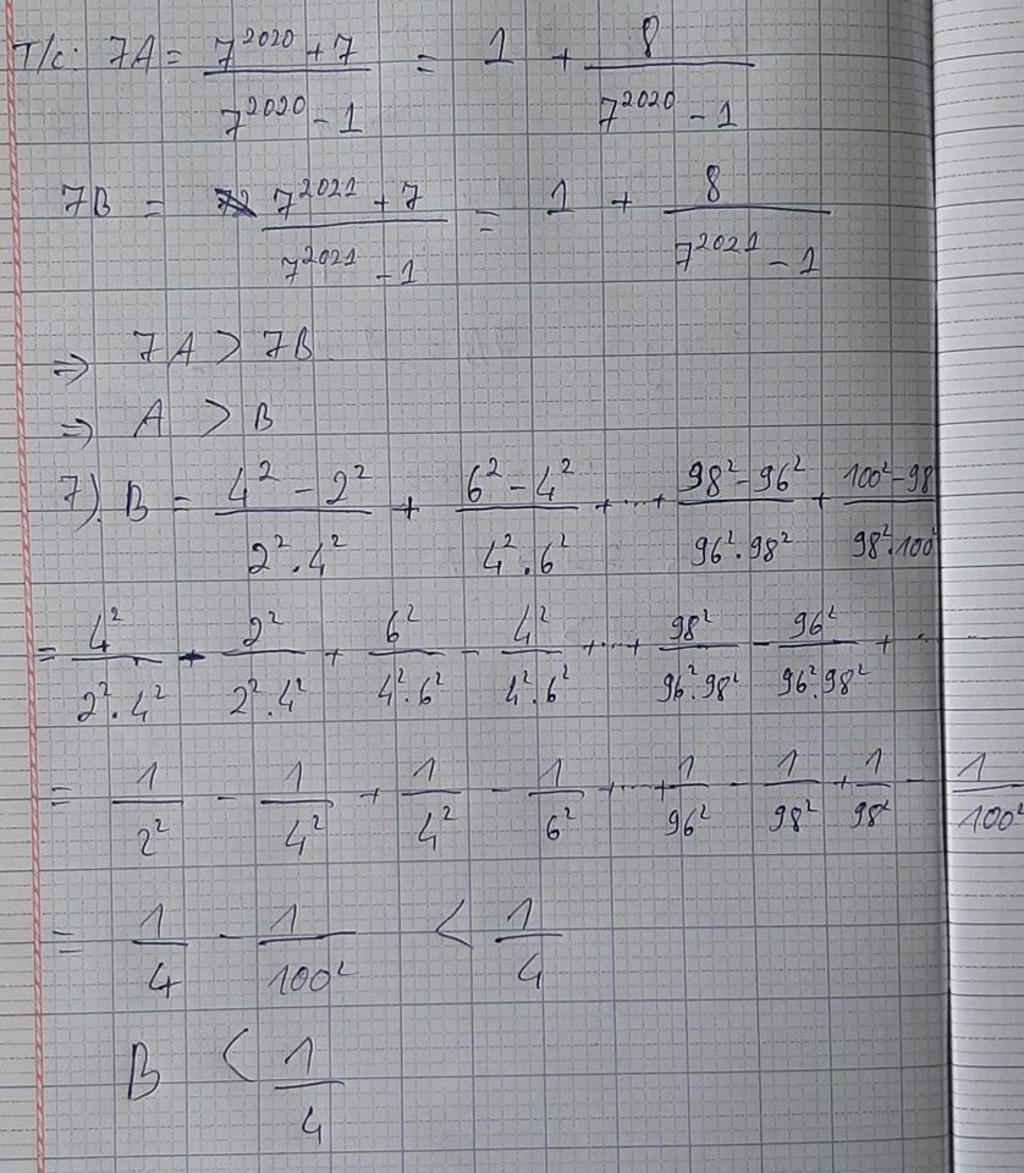 T/c: 7A = \frac{7^{2020} + 7}{7^{2020} - 1} = 1 + \frac{8}{7^{2020} - 1}
7B = \frac{7^{2021} + 7}{7^{2021} - 1} = 1 + \frac{8}{7^{2021} - 1}
⇒ 7A > 7B
⇒ A > B
7). B = \frac{4^2 - 2^2}{2^2 . 4^2} + \frac{6^2 - 4^2}{4^2 . 6^2} + ... + \frac{98^2 - 96^2}{96^2 . 98^2} + \frac{100^2 - 98}{98^2 . 100}
= \frac{4^2}{2^2 . 4^2} - \frac{2^2}{2^2 . 4^2} + \frac{6^2}{4^2 . 6^2} - \frac{4^2}{4^2 . 6^2} + ... + \frac{98^2}{96^2 . 98^2} - \frac{96^2}{96^2 . 98^2} + ...
= \frac{1}{2^2} - \frac{1}{4^2} + \frac{1}{4^2} - \frac{1}{6^2} + ... + \frac{1}{96^2} - \frac{1}{98^2} + \frac{1}{98^2} - \frac{1}{100^2}
= \frac{1}{4} - \frac{1}{100^2} < \frac{1}{4}
B < \frac{1}{4}